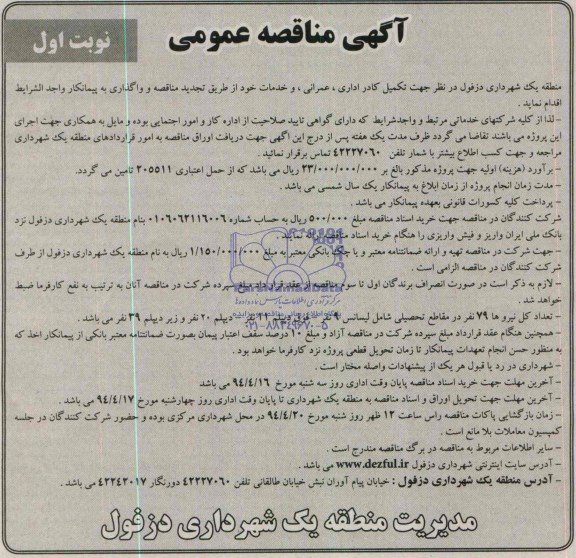 آگهی مناقصه عمومی
نوبت اول
منطقه یک شهرداری دزفول در نظر جهت تکمیل کادر اداری ، عمرانی ، و خدمات خود از طریق تجدید مناقصه و واگذاری به پیمانکار واجد الشرایط
اقدام نماید .
-لذا از کلیه شرکتهای خدماتی مرتبط و واجدشرایط که دارای گواهی تایید صلاحیت از اداره کار و امور اجتمایی بوده و مایل به همکاری جهت اجرای
این پروژه می باشند تقاضا می گردد ظرف مدت یک هفته پس از درج این اگهی جهت دریافت اوراق مناقصه به امور قراردادهای منطقه یک شهرداری
مراجعه و جهت کسب اطلاع بیشتر با شمار تلفن ۴۲۲۲۷۰۶۰ تماس برقرار نمائید .
- برآورد (هزینه) اولیه جهت پروژه مذکور بالغ بر ۲۳/۰۰۰/۰۰۰/۰۰۰ ریال می باشد که از حمل اعتباری ۳۰۵۵۱۱ تامین می گردد.
- مدت زمان انجام پروژه از زمان ابلاغ به پیمانکار یک سال شمسی می باشد .
- پرداخت کلیه کسورات قانونی بعهده پیمانکار می باشد .
شرکت کنندگان در مناقصه جهت خرید اسناد مناقصه مبلغ ۵۰۰/۰۰۰ ریال به حساب شماره ۰۱۰۶۰۶۲۱۱۶۰۰۶ بنام منطقه یک شهرداری دزفول نزد
بانک ملی ایران واریز و فیش واریزی را هنگام خرید اسناد مناقصه ارائه نمائید .
- جهت شرکت در مناقصه تهیه و ارائه ضمانتنامه معتبر و یا چک بانکی معتبر به مبلغ ۱/۱۵۰/۰۰۰/۰۰۰ ریال به نام منطقه یک شهرداری دزفول از طرف
شرکت کنندگان در مناقصه الزامی است .
- لازم به ذکر است در صورت انصراف برندگان اول تا سوم مناقصه از عقد قرارداد مبلغ سپرده شرکت در مناقصه آنان به ترتیب به نفع کارفرما ضبط
خواهد شد .
- تعداد کل نیرو ها ۷۹ نفر در مقاطع تحصیلی شامل لیسانس ۹ نفر - فوق دیپلم ۱۱ نفر - دیپلم ۲۰ نفر و زیر دیپلم ۳۹ نفر می باشد .
- همچنین هنگام عقد قرارداد مبلغ سپرده شرکت در مناقصه آزاد و مبلغ ۱۰ درصد سقف اعتبار پیمان بصورت ضمانتنامه معتبر بانکی از پیمانکار اخذ که
به منظور حسن انجام تعهدات پیمانکار تا زمان تحویل قطعی پروژه نزد کارفرما خواهد بود .
- شهرداری در رد یا قبول هر یک از پیشنهادات واصله مختار است .
- آخرین مهلت جهت خرید اسناد مناقصه پایان وقت اداری روز سه شنبه مورخ ۹۴/۴/۱۶ می باشد
- آخرین مهلت جهت تحویل اوراق و اسناد مناقصه به منطقه یک شهرداری تا پایان وقت اداری روز چهارشنبه مورخ ۹۴/۴/۱۷ می باشد .
- زمان بازگشایی پاکات مناقصه راس ساعت ۱۳ ظهر روز شنبه مورخ ۹۴/۴/۲۰ در محل شهرداری مرکزی بوده و حضور شرکت کنندگان در جلسه
کمیسیون معاملات بلا مانع است .
- سایر اطلاعات مربوط به مناقصه در برگ مناقصه مندرج است .
- آدرس سایت اینترنتی شهرداری دزفول www.dezful.ir می باشد .
- آدرس منطقه یک شهرداری دزفول : خیابان پیام آوران نبش خیابان طالقانی تلفن ۴۲۲۲۷۰۶۰ دورنگار ۴۲۲۴۲۰۱۷ می باشد .
مدیریت منطقه یک شهرداری دزفول
۰۲۱-۸۸۳۴۹۶۷۰-۵